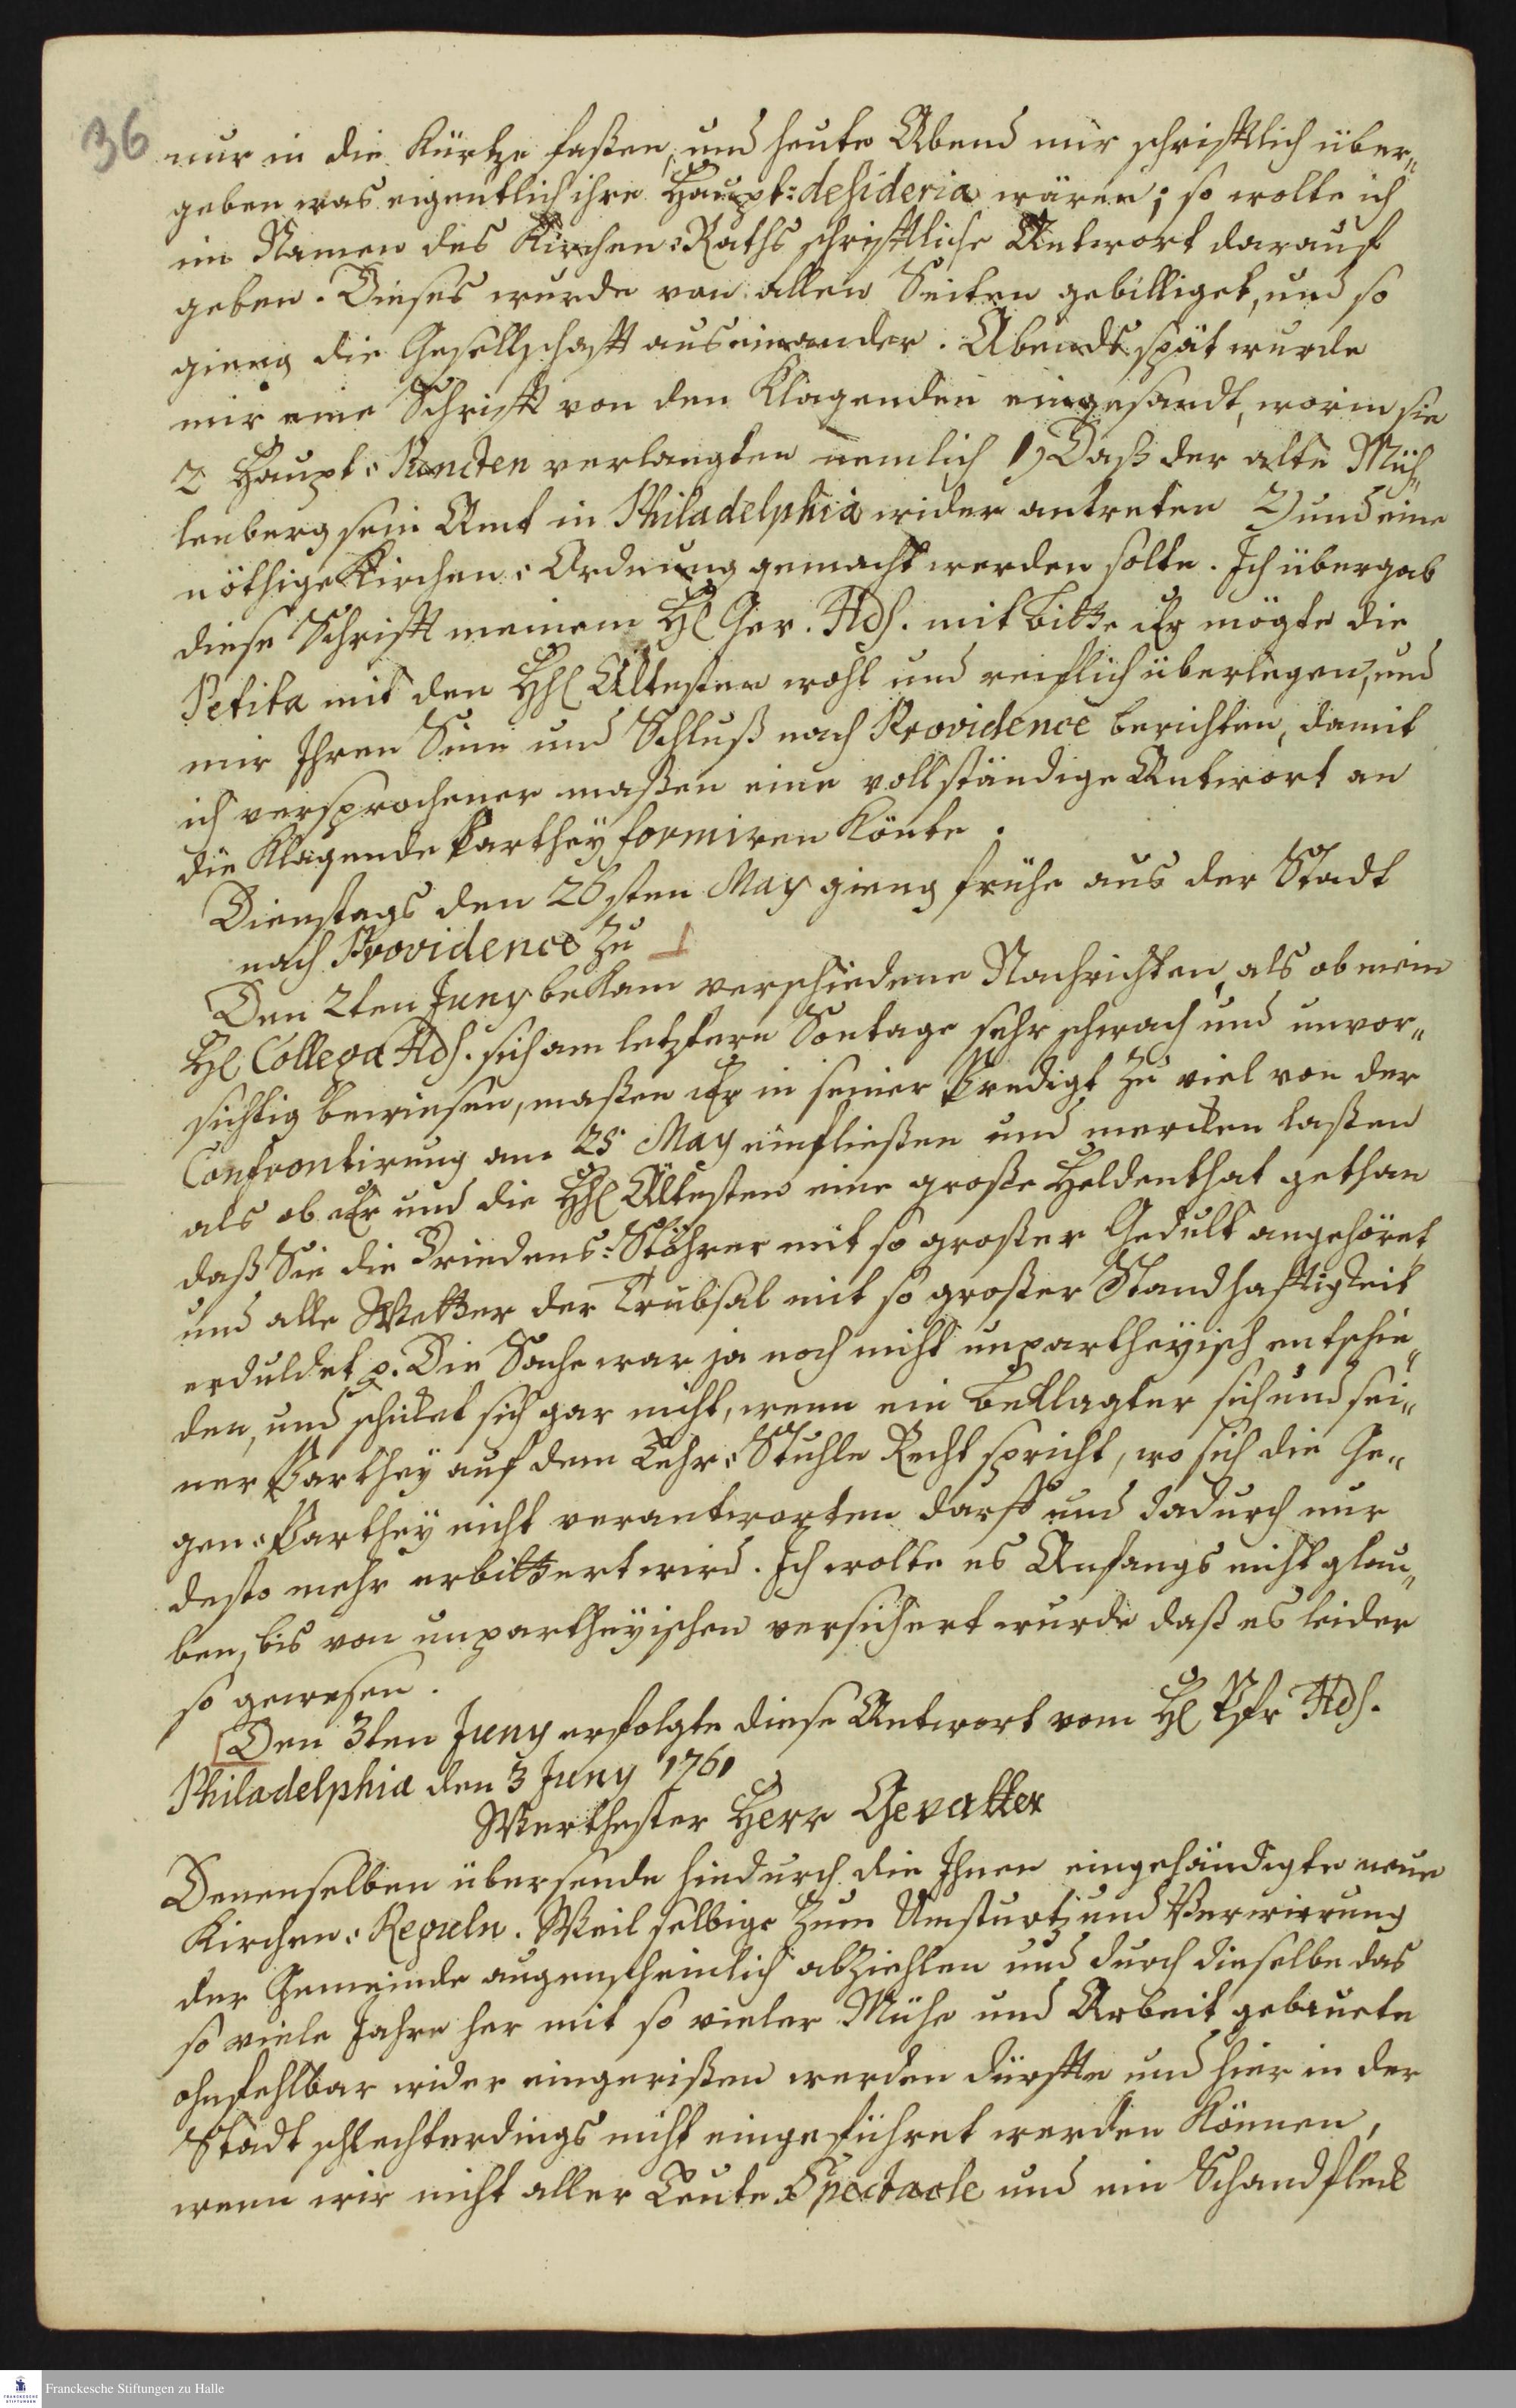 36
nur in die Kürtze faßen, und heute Abend mir schrifftlich über„
geben was eigentlich ihre Haupt=desideria wären; so wolte ich
im Namen des Kirchen=Raths schrifftliche Antwort darauf
geben. Dieses wurde von allen Seiten gebilliget, und so
gieng die Gesellschafft auseinander. Abends spät wurde
mir eine Schrifft von den Klagenden eingesandt, worin sie
2 Haupt=Puncten verlangten nemlich 1) Daß der alte Müh„
lenberg sein Amt in Philadelphia wider antreten 2) und eine
nöthige Kirchen=Ordnung gemacht werden solte. Ich übergab
diese Schrifft meinem H Gev. Hds. mit bitte Er mögte die
Petita mit den HH Ältesten wohl und reiflich überlegen, und
mir Ihren Sinn und Schluß nach Providence berichten, damit
ich versprochener maßen eine vollständige Antwort an
die Klagende Parthey formiren Könte.
Dienstags den 26sten May gieng frühe aus der Stadt
nach Providence zu
Den 2ten Juny bekam verschiedene Nachrichten, als ob mein
H Collega Hds. sich am letztern Sontage sehr schwach und unvor„
sichtig bewiesen, maßen Er in seiner Predigt zu viel von der
Confrontirung am 25 May einfließen und mercken laßen
als ob Er und die HH Ältesten eine große Heldenthat gethan
daß Sie die Friedens=Stöhrer mit so großer Gedult angehöret,
und alle Wetter der Trübsal mit so großer Standhafftigkeit
erduldet p. Die Sache war ja noch nicht unpartheyisch entschie„
den, und schicket sich gar nicht, wenn ein beklagter sich und sei„
ner Parthey auf dem Lehr=Stuhle Recht spricht, wo sich die Ge„
gen=Parthey nicht verantworten darff und dadurch nur
desto mehr erbittert wird. Ich wolte es Anfangs nicht glau„
ben, bis von unpartheyischen versichert wurde daß es leider
so gewesen.
Den 3ten Juny erfolgte diese Antwort vom H Pfr Hds.
Philadelphia den 3 Juny 1761
Werthester Herr Gevatter
Denenselben übersende hiedurch die Ihnen eingehändigte neue
Kirchen=Reguln. Weil selbige zum Umsturtz und Verwirrung
der Gemeinde augenscheinlich abziehlen und durch dieselbe das
so viele Jahre her mit so vieler Mühe und Arbeit gebauete
ohnfehlbar wider eingerißen werden dürffte und hier in der
Stadt schlechterdings nicht eingeführet werden Können,
wenn wir nicht aller Leute Spectacle und ein Schandfleck
Franckesche Stiftungen zu Halle